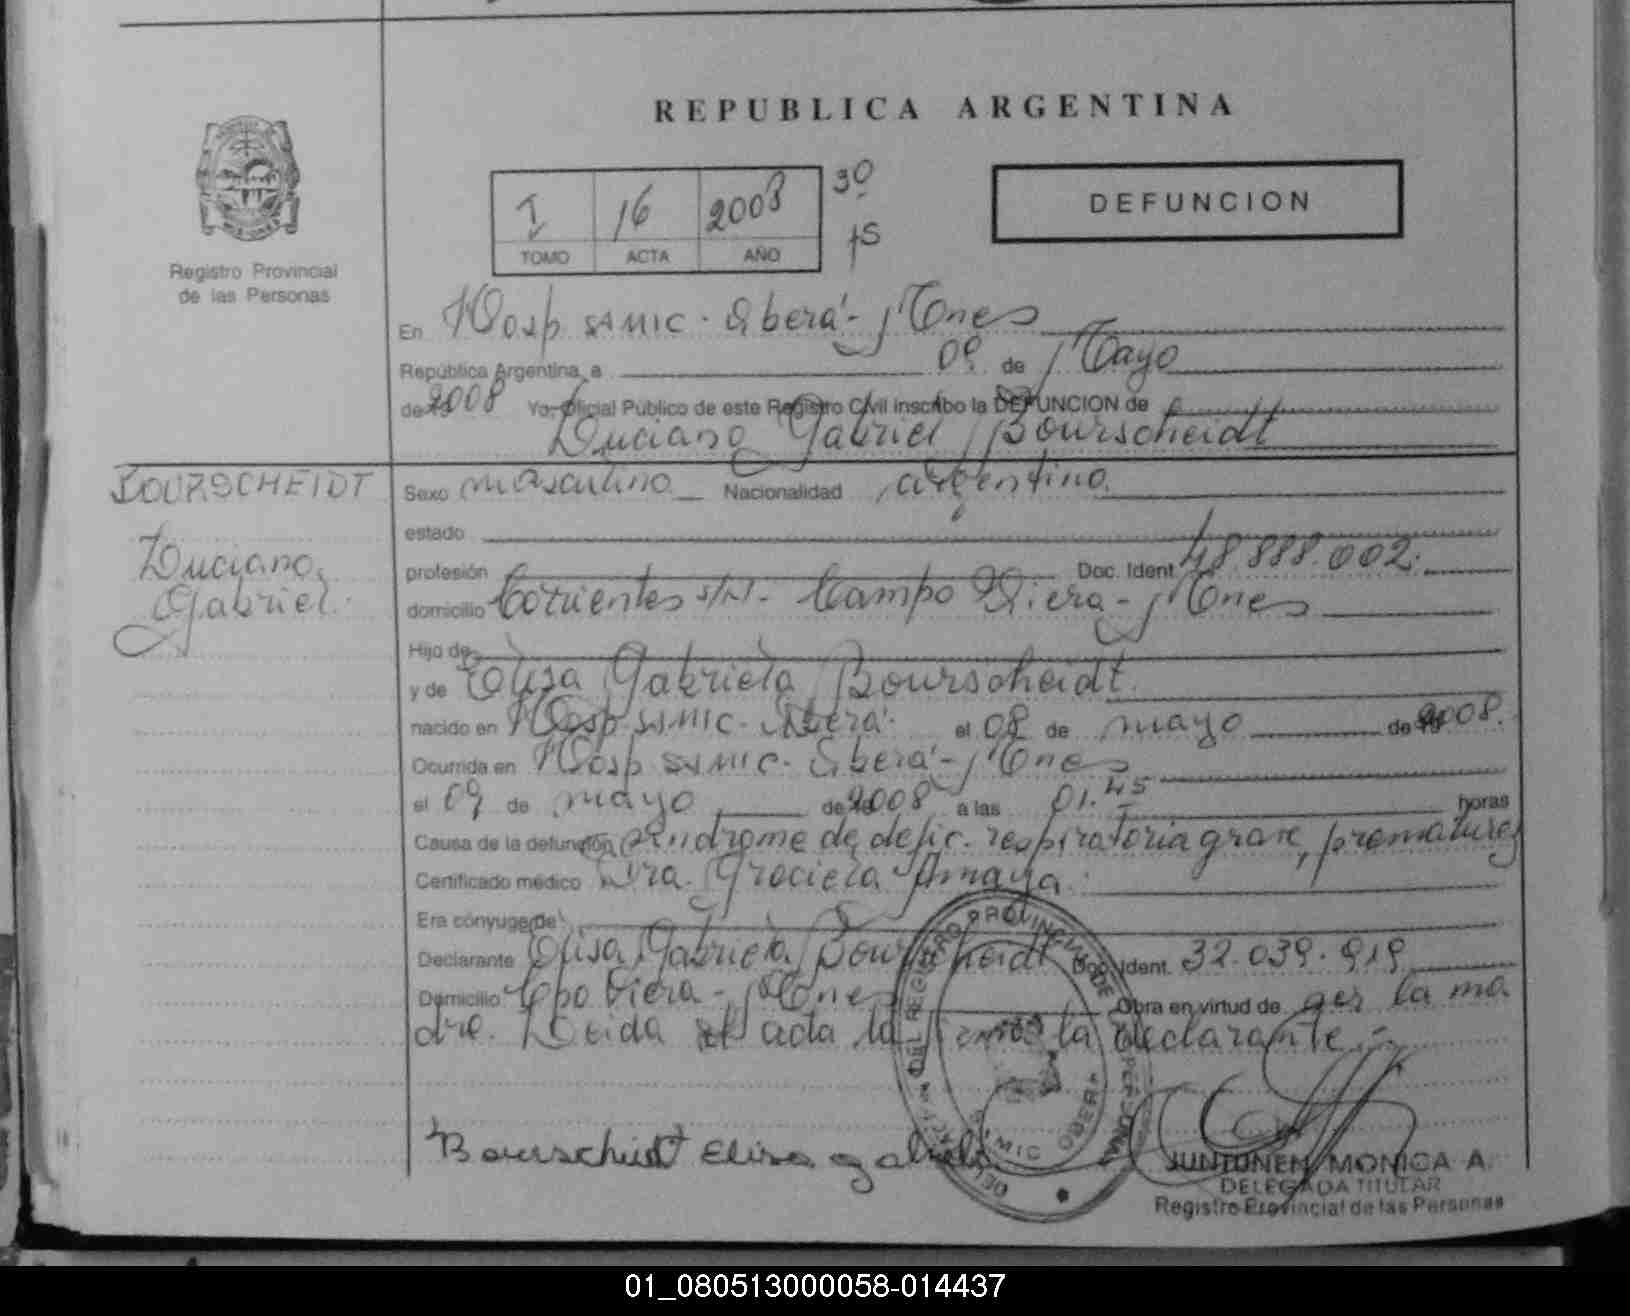 REPUBLICA ARGENTINA
I 16 2008 30
TOMO ACTA AÑO 15
DEFUNCION
Registro Provincial
de las Personas
En Hosp SAMIC. Oberá - Mnes
República Argentina, a 09 de Mayo
de 2008 Yo, Oficial Público de este Registro Civil inscribo la DEFUNCION de
Luciano Gabriel Bourscheidt
BOURSCHEIDT
Luciano
Gabriel.
Sexo masculino Nacionalidad argentino.
estado
profesión Doc. Ident. 48.888.002.
domicilio Corrientes s/N - Campo Viera - Mnes
Hijo de
y de Elisa Gabriela Bourscheidt.
nacido en Hosp SAMIC. Oberá. el 08 de mayo de 2008.
Ocurrida en Hosp SAMIC. Oberá - Mnes
el 09 de mayo de 2008 a las 01.45 horas
Causa de la defunción Sindrome de defic. respiratoria grave, prematurez
Certificado médico Dra. Graciela Amaya.
Era cónyuge de
Declarante Elisa Gabriela Bourscheidt Doc. Ident. 32.039.919
Domicilio Cpo Viera - Mnes Obra en virtud de ser la ma
dre. Leida el acta la firma la declarante.-
Bourscheidt Elisa gabriela
DEL REGISTRO PROVINCIAL DE
SAMIC OBERA
JUNTUNEN, MONICA A.
DELEGADA TITULAR
Registro Provincial de las Personas
01_080513000058-014437